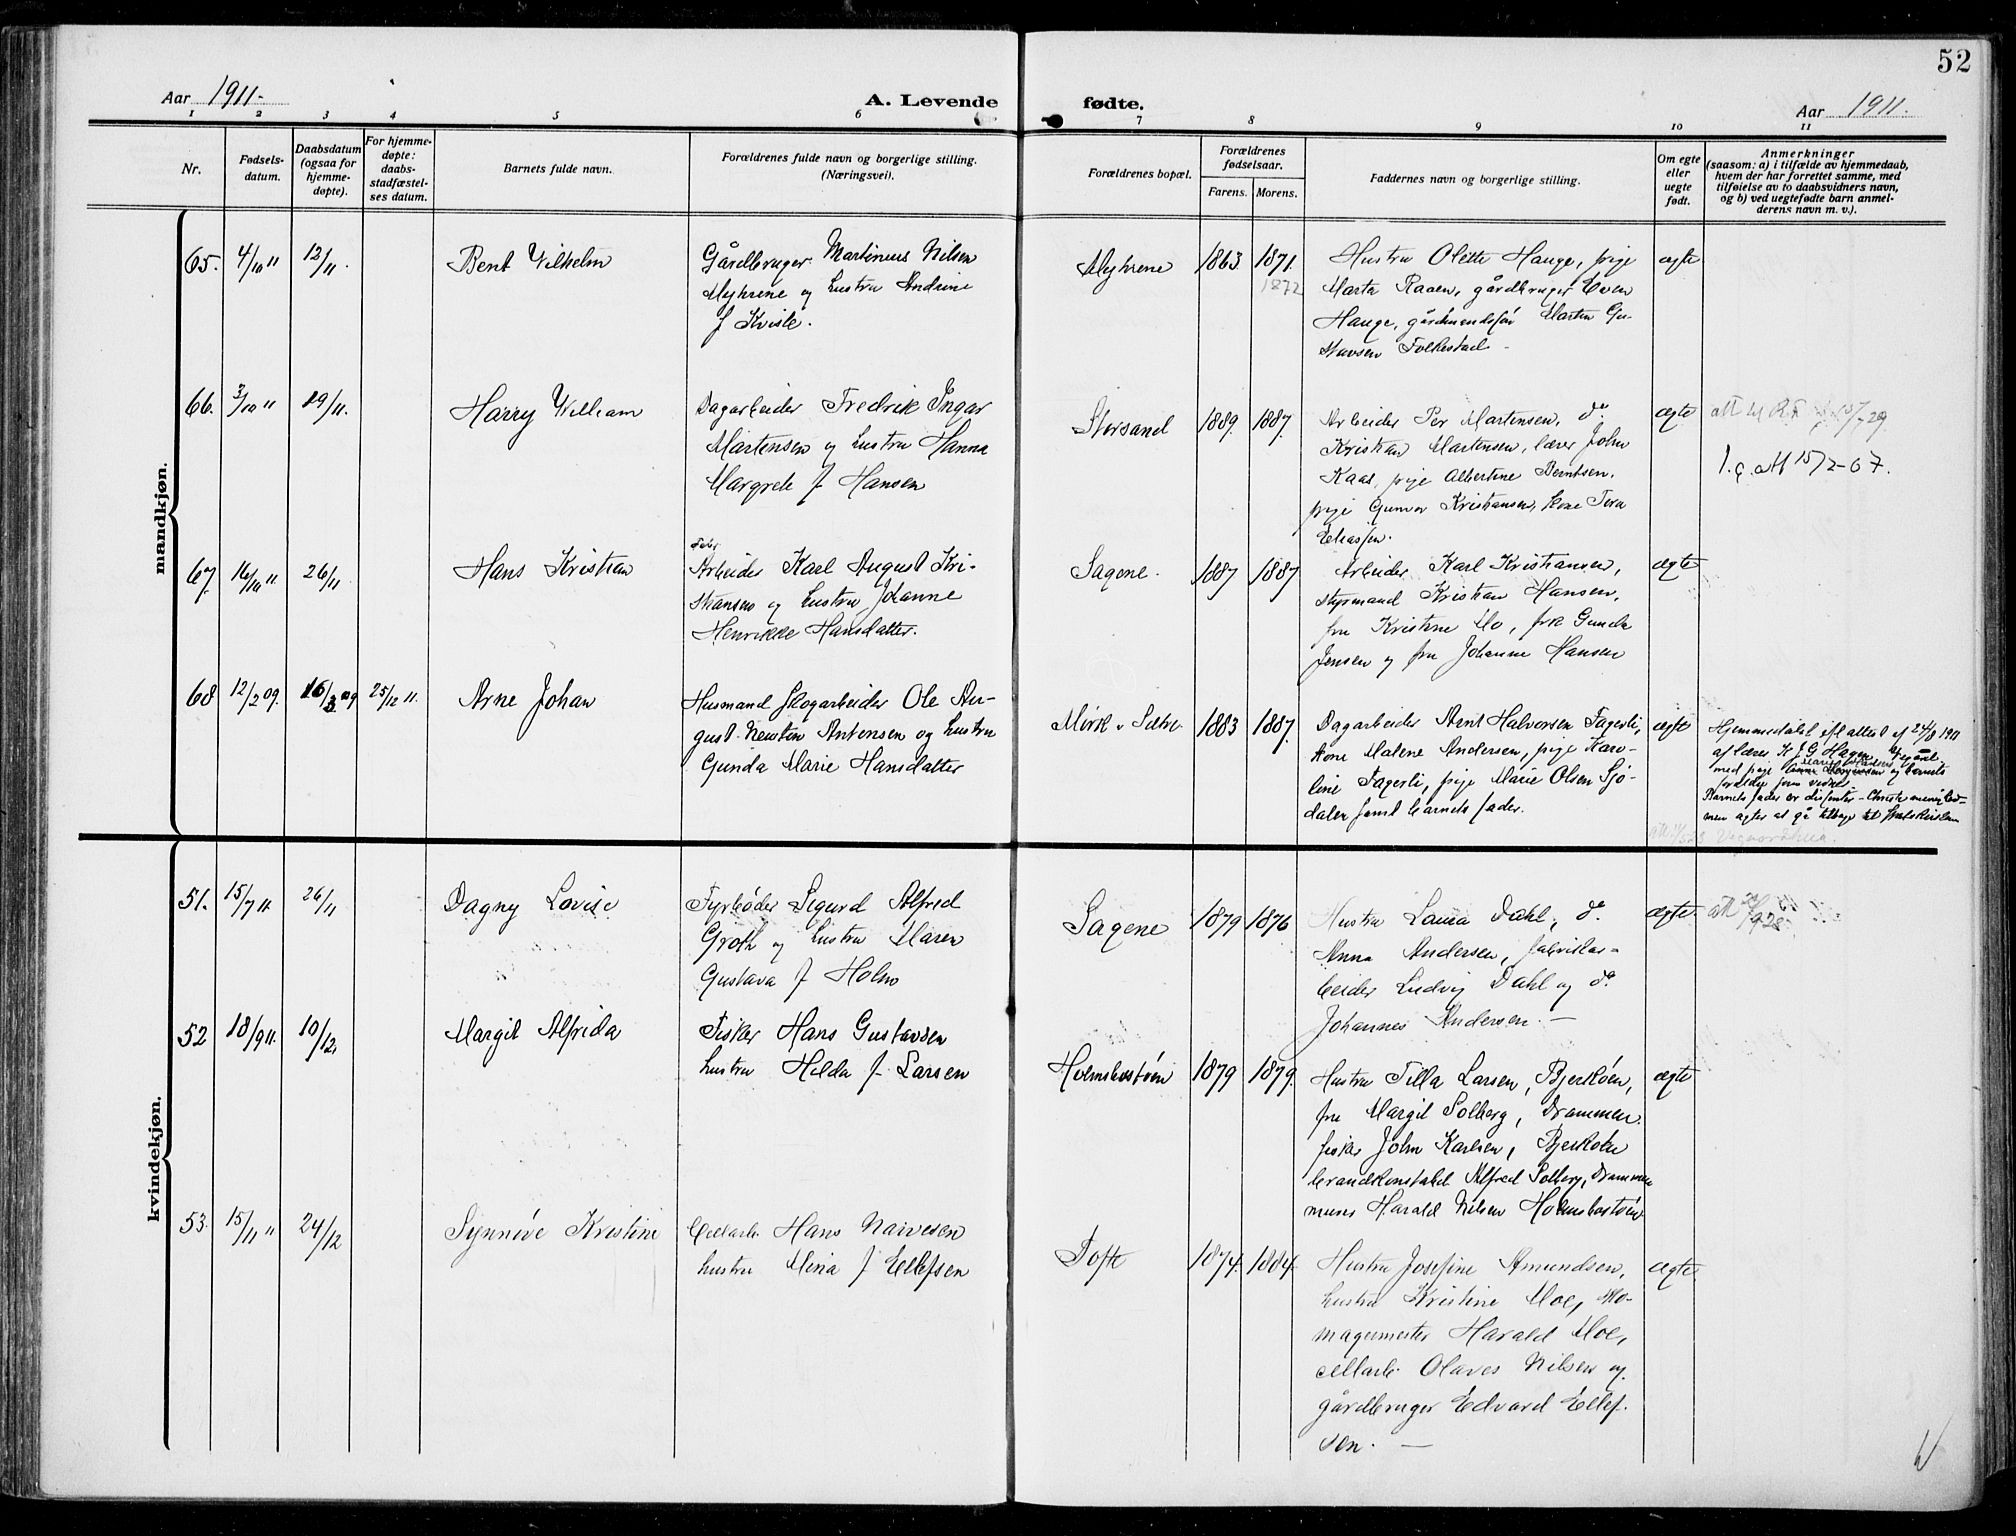 52
Aar 1911.
A. Levende fødte.
Aar 1911.
1 2 3 4 5 6 7 8 9 10 11
Nr.
Fødsels-
datum.
Daabsdatum
(ogsaa for
hjemme-
døpte).
For hjemme-
døpte:
daabs-
stadfæstel-
ses datum.
Barnets fulde navn.
Forældrenes fulde navn og borgerlige stilling.
(Næringsvei).
Forældrenes bopæl.
Forældrenes
fødselsaar.
Farens. Morens.
Faddernes navn og borgerlige stilling.
Om egte
eller
uegte
født.
Anmerkninger
(saasom: a) i tilfælde av hjemmedaab,
hvem der har forrettet samme, med
tilføielse av to daabsvidners navn,
og b) ved uegtefødte barn anmel-
derens navn m. v.).
mandkjøn.
65. 4/10 11 12/11. Bent Vilhelm
Gårdbruger Martinius Nilsen
Myhrene og hustru Andrine
f Kvisle.
Myhrene 1863 1871.
1872
Hustru Olette Hauge, pige
Marta Raaen, gårdbruger Even
Hauge, gårdmandssøn Martin Gu-
stavsen Folkestad -
egte
66. 3/10 11 19/11. Harry William
Dagarbeider Fredrik Ingar
Martensen og hustru Hanna
Margrete f Hansen
Storsand 1889. 1887.
Arbeider Per Martensen, do
Kristian Martensen, lærer John
Kaas, pige Albertine Berntsen.
pige Gunvor Kristiansen, kone Tora
Eliassen.
ægte
1. ç. att 15/2-67.
67. 16/10 11 26/11 Hans Kristian
Fabr
Arbeider Karl August Kri-
stiansen og hustru Johanne
Henrikke Hansdatter.
Sagene. 1887 1887
Arbeider Karl Kristiansen,
styrmand Kristian Hansen,
fru Kristine Mo, frk Gunda
Jensen og fru Johanne Hansen
ægte
68 12/2 09. 16/3 09 25/12 11. Arne Johan
Husmand skogarbeider Ole Au-
gust Newton Antonsen og hustru
Gunda Marie Hansdatter
Mörk v Sætre 1883 1887.
Dagarbeider Arnt Halvorsen Fagerli,
kone Malene Andersen, pige Karo-
line Fagerli, pige Marie Olsen Sjö-
dalen samt barnets fader.
ægte
Hjemmedøbt efl attest af 24/9 1911
af lærer K J G Hagen
forældre som vidner
Barnets fader er disenter -
men agter at gå tilbage til statskirken
kvindekjøn.
51. 15/7 11 26/11 Dagny Lovise
Fyrbøder Sigurd Alfred
Groth og hustru Maren
Gustava f Holm
Sagene 1879 1876
Hustru Laura Dahl, do
Anna Andersen, fabrikar-
beider Ludvig Dahl og do
Johannes Andersen. —
ægte.
52 18/9 11. 10/12 Margit Alfrida
Fisker Hans Gustavsen
hustru Hilda f Larsen
Holmsbostöen 1879 1879.
Hustru Tilla Larsen, Bjerköen,
fru Margit Solberg, Drammen.
fisker John Karlsen, Bjerköen
brandkonstabel Alfred Solberg, Drammen
murer Harald Nilsen Holmsbostöen
ægte
53. 15/11 11 24/12 Synnöve Kristine
Cellarb. Hans Narvesen
hustru Mina f Ellefsen
Tofte 1874. 1884.
Hustru Josefine Amundsen,
hustru Kristine Moe, sko-
magermester Harald Moe,
cellarb. Olaves Nilsen og
gårdbruger Edvard Ellef-
sen. —
ægte